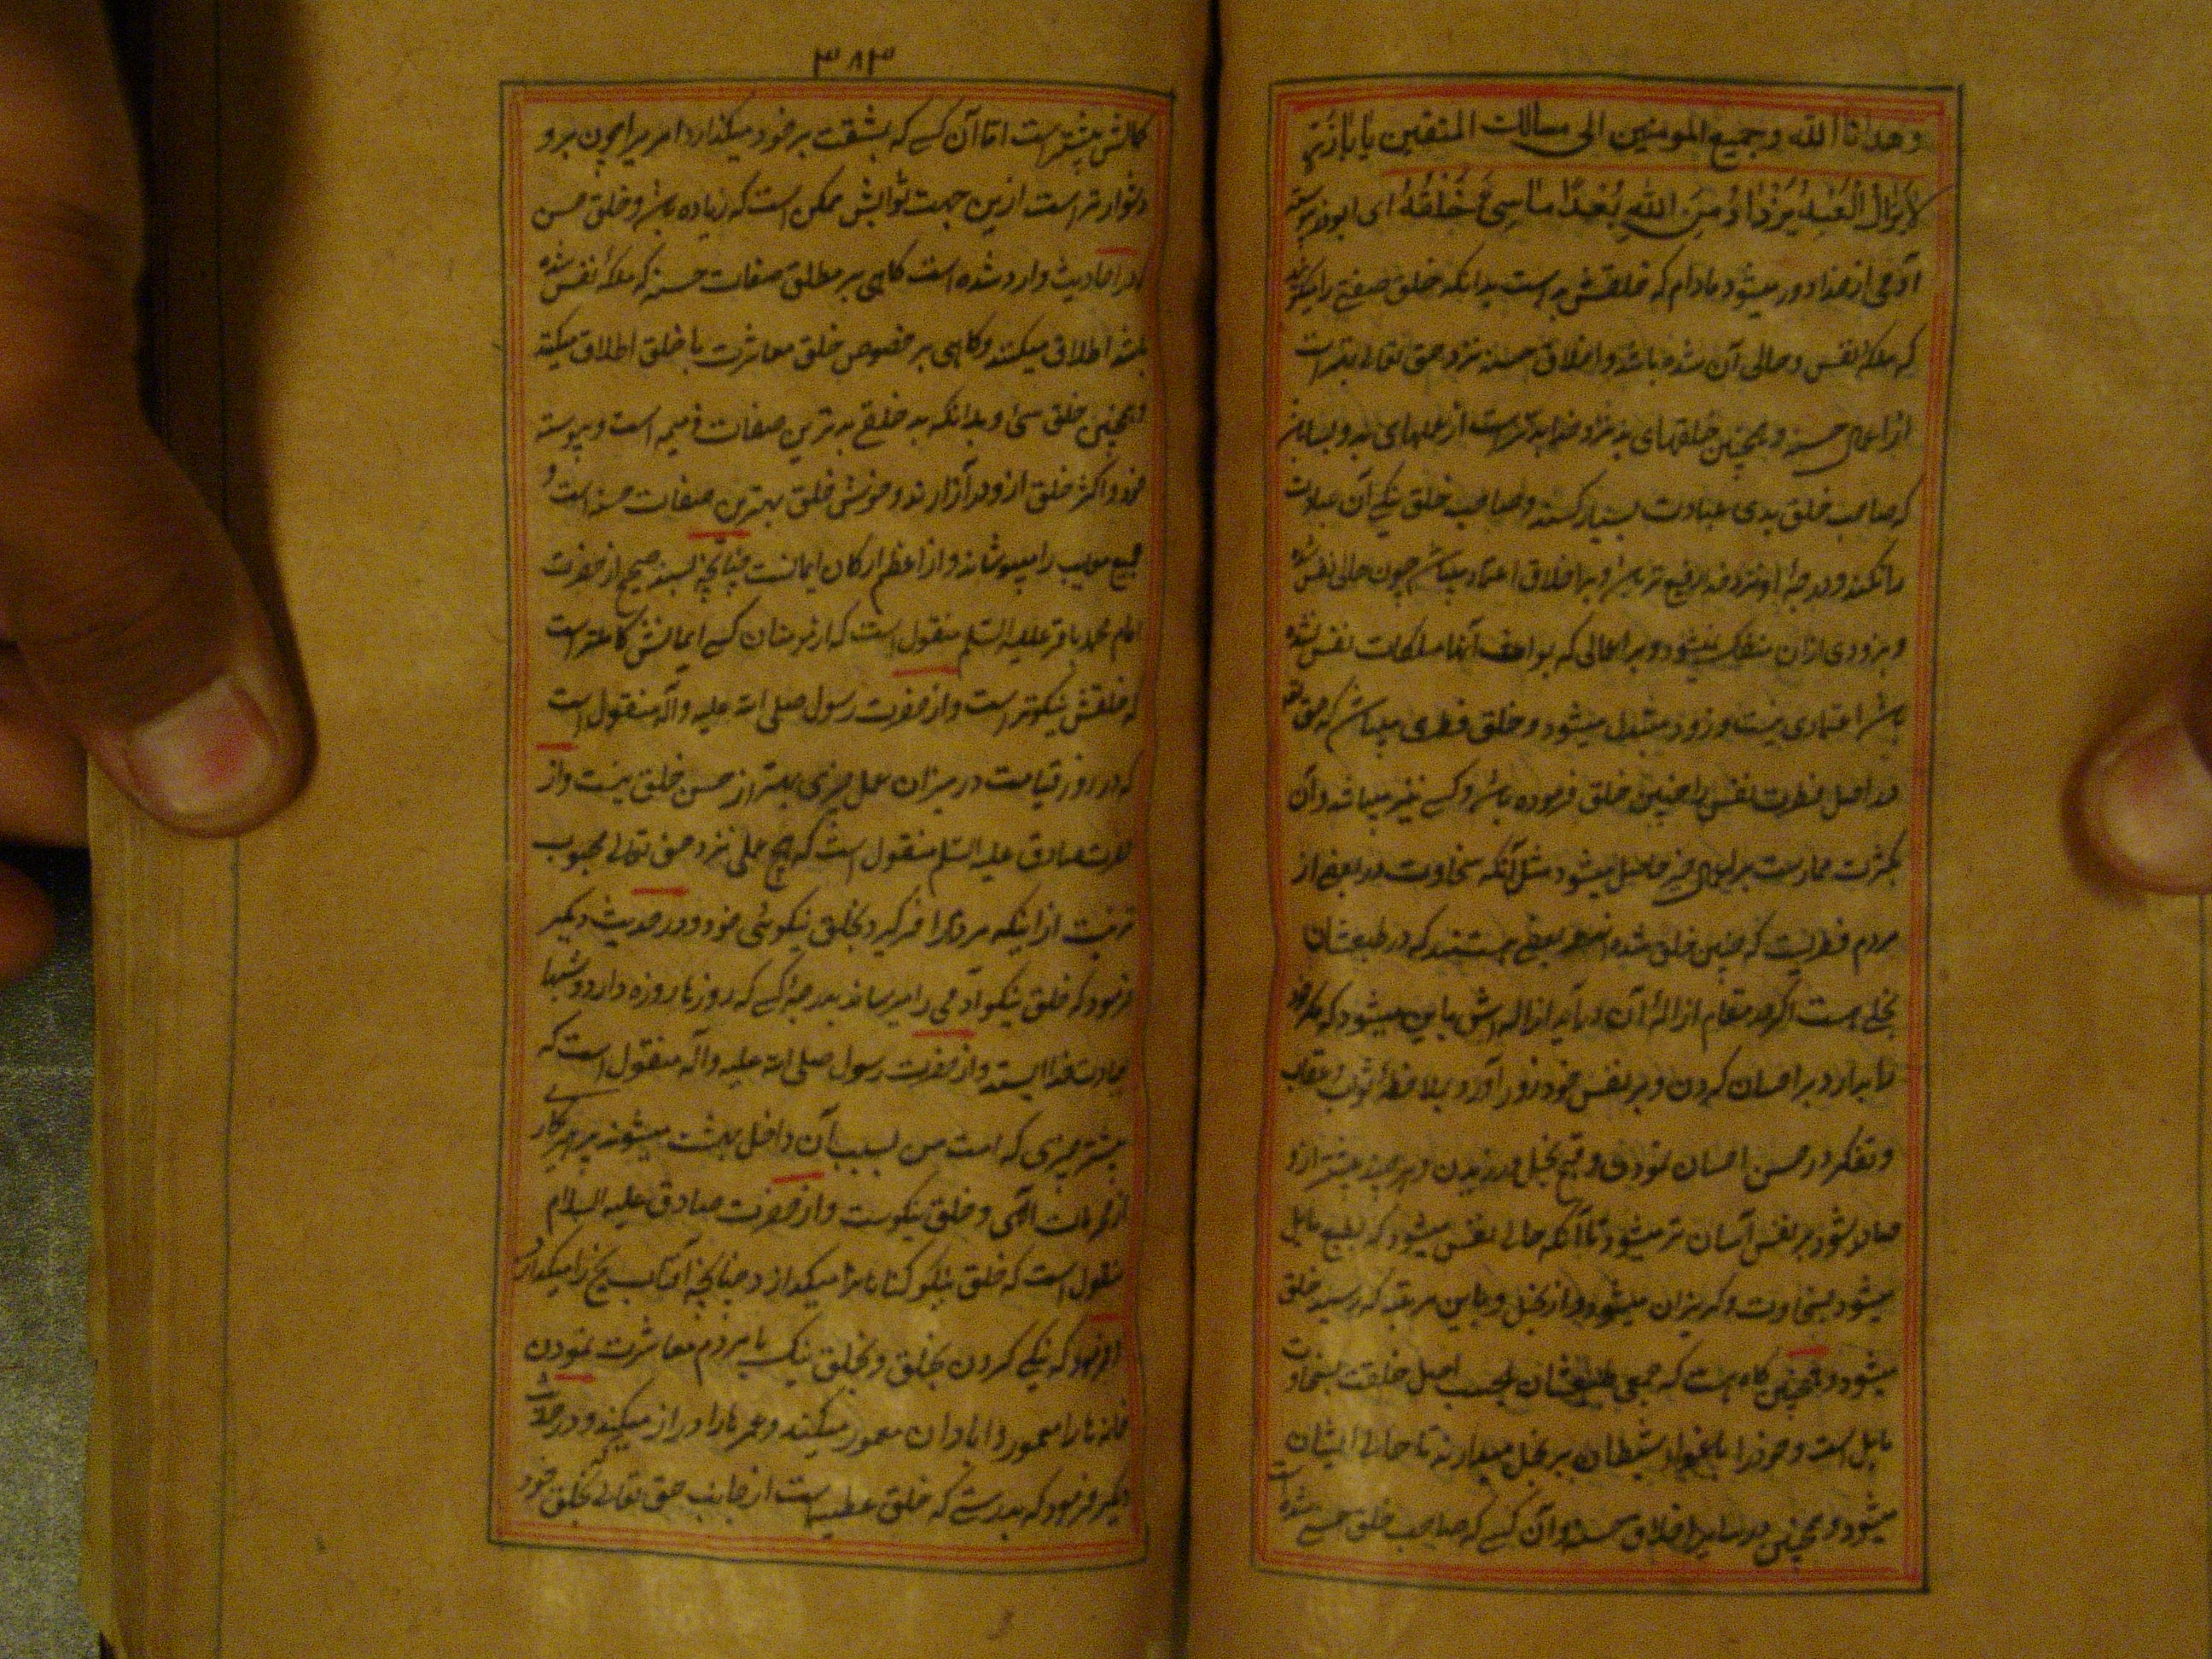 وهدانا الله وجمیع المومنین الی مسالک المتقین یا باذر
لایزال العبد یزداد من الله بعدا ما سیئ خلقه ای ابوذر پیوسته
آدمی از خدا دور میشود مادام که خلقش بد است بدانکه خلق صفتی را میکویند
که ملکه نفس و حالی آن شده باشد و اخلاق حسنه نزد حق تعالی بهتر است
از اعمال حسنه و همچنین خلقهای بد نزد خدا بدتر است از عملهای بد و بسا باشد
که صاحب خلق بدی عبادت بسیار کند و صاحب خلق نیکی آن عبادت
را نکند و درجهٔ او نزد خدا رفیع تر باشد و بر اخلاق اعتماد میباشد چون حالی نفس شده
و بزودی ازان منفک نمیشود و بر اعمالی که بواعث آنها ملکات نفس نشده
باشد اعتمادی نیست و زود متبدل میشود و خلق فطری میباشد که حق تعالی
در اصل فطرت نفس را چنین خلق فرموده باشد و کسبی نیز میباشد و آن
بکثرت ممارست بر اعمال خیر حاصل میشود مثل آنکه سخاوت در بعضی از
مردم فطریست که چنین خلق شده اند و بعضی هستند که در طبعشان
بخلی هست اگر در مقام ازالهٔ آن در آید ازاله اش باین میشود که مکرر خود
را بدارد بر احسان کردن و بر نفس خود زور آورد بملاحظهٔ ثواب و عقاب
و تفکر در حسن احسان نمودن و قبح بخل ورزیدن و هر چند بیشتر ازو
صادر شود بر نفس آسان تر میشود تا آنکه حالی نفس میشود که بطبع مایل
میشود بسخاوت و گریزان میشود از بخل و باین مرتبه که رسید خلق
میشود و همچنین گاه هست که جمعی طبیعتشان بحسب اصل خلقت بسخاوت
مایل است و خود را باغوای شیطان بر بخل میدارند تا حالی ایشان
میشود و همچنین در سایر اخلاق حسنه و آن کسی که صاحب خلق حسنی شده است
۳۸۳
کمالش بیشتر است اما آن کسی که بمشقت بر خود میگذارد امر را چون برو
دشوارتر است ازین جهت ثوابش ممکن است که زیاده باشد و خلق حسن
در احادیث وارد شده است گاهی بر مطلق صفات حسنه که ملکهٔ نفس شده
باشد اطلاق میکنند و گاهی بر خصوص خلق معاشرت با خلق اطلاق میکنند
و همچنین خلق سیئ و بدانکه بد خلقی بدترین صفات ذمیمه است و پیوسته
خود و اکثر خلق ازو در آزارند و خوش خلق بهترین صفات حسنه است و
جمیع معایب را میپوشاند و از اعظم ارکان ایمانست چنانچه بسند صحیح از حضرت
امام محمد باقر علیه السلم منقول است که از مومنان کسی ایمانش کاملتر است
که خلقش نیکوتر است و از حضرت رسول صلی الله علیه و آله منقول است
که در روز قیامت در میزان عمل چیزی بهتر از حسن خلق نیست و از
حضرت صادق علیه السلم منقول است که هیچ عملی نزد حق تعالی محبوب
تر نیست از اینکه مردم را فرا گیرد بخلق نیکوئی خود و در حدیث دیگر
فرمود که خلق نیکو آدمی را میرساند بدرجهٔ کسی که روزها روزه دارد و شبها
بعبادت خدا ایستد و از حضرت رسول صلی الله علیه و آله منقول است که
بیشتر چیزی که امت من بسبب آن داخل بهشت میشوند پرهیزکاری
از محرمات الهی و خلق نیکوست و از حضرت صادق علیه السلام
منقول است که خلق نیکو گناهانرا میگدازد چنانچه آفتاب یخ را میگدازد و
فرمود که نیکی کردن بخلق و بخلق نیک با مردم معاشرت نمودن
خانه ها را معمور و آبادان میکند و عمرها را دراز میکند و در حدیث
دیگر فرمود که بدرستی که خلق عطیه است از جانب حق تعالی که بخلق خود